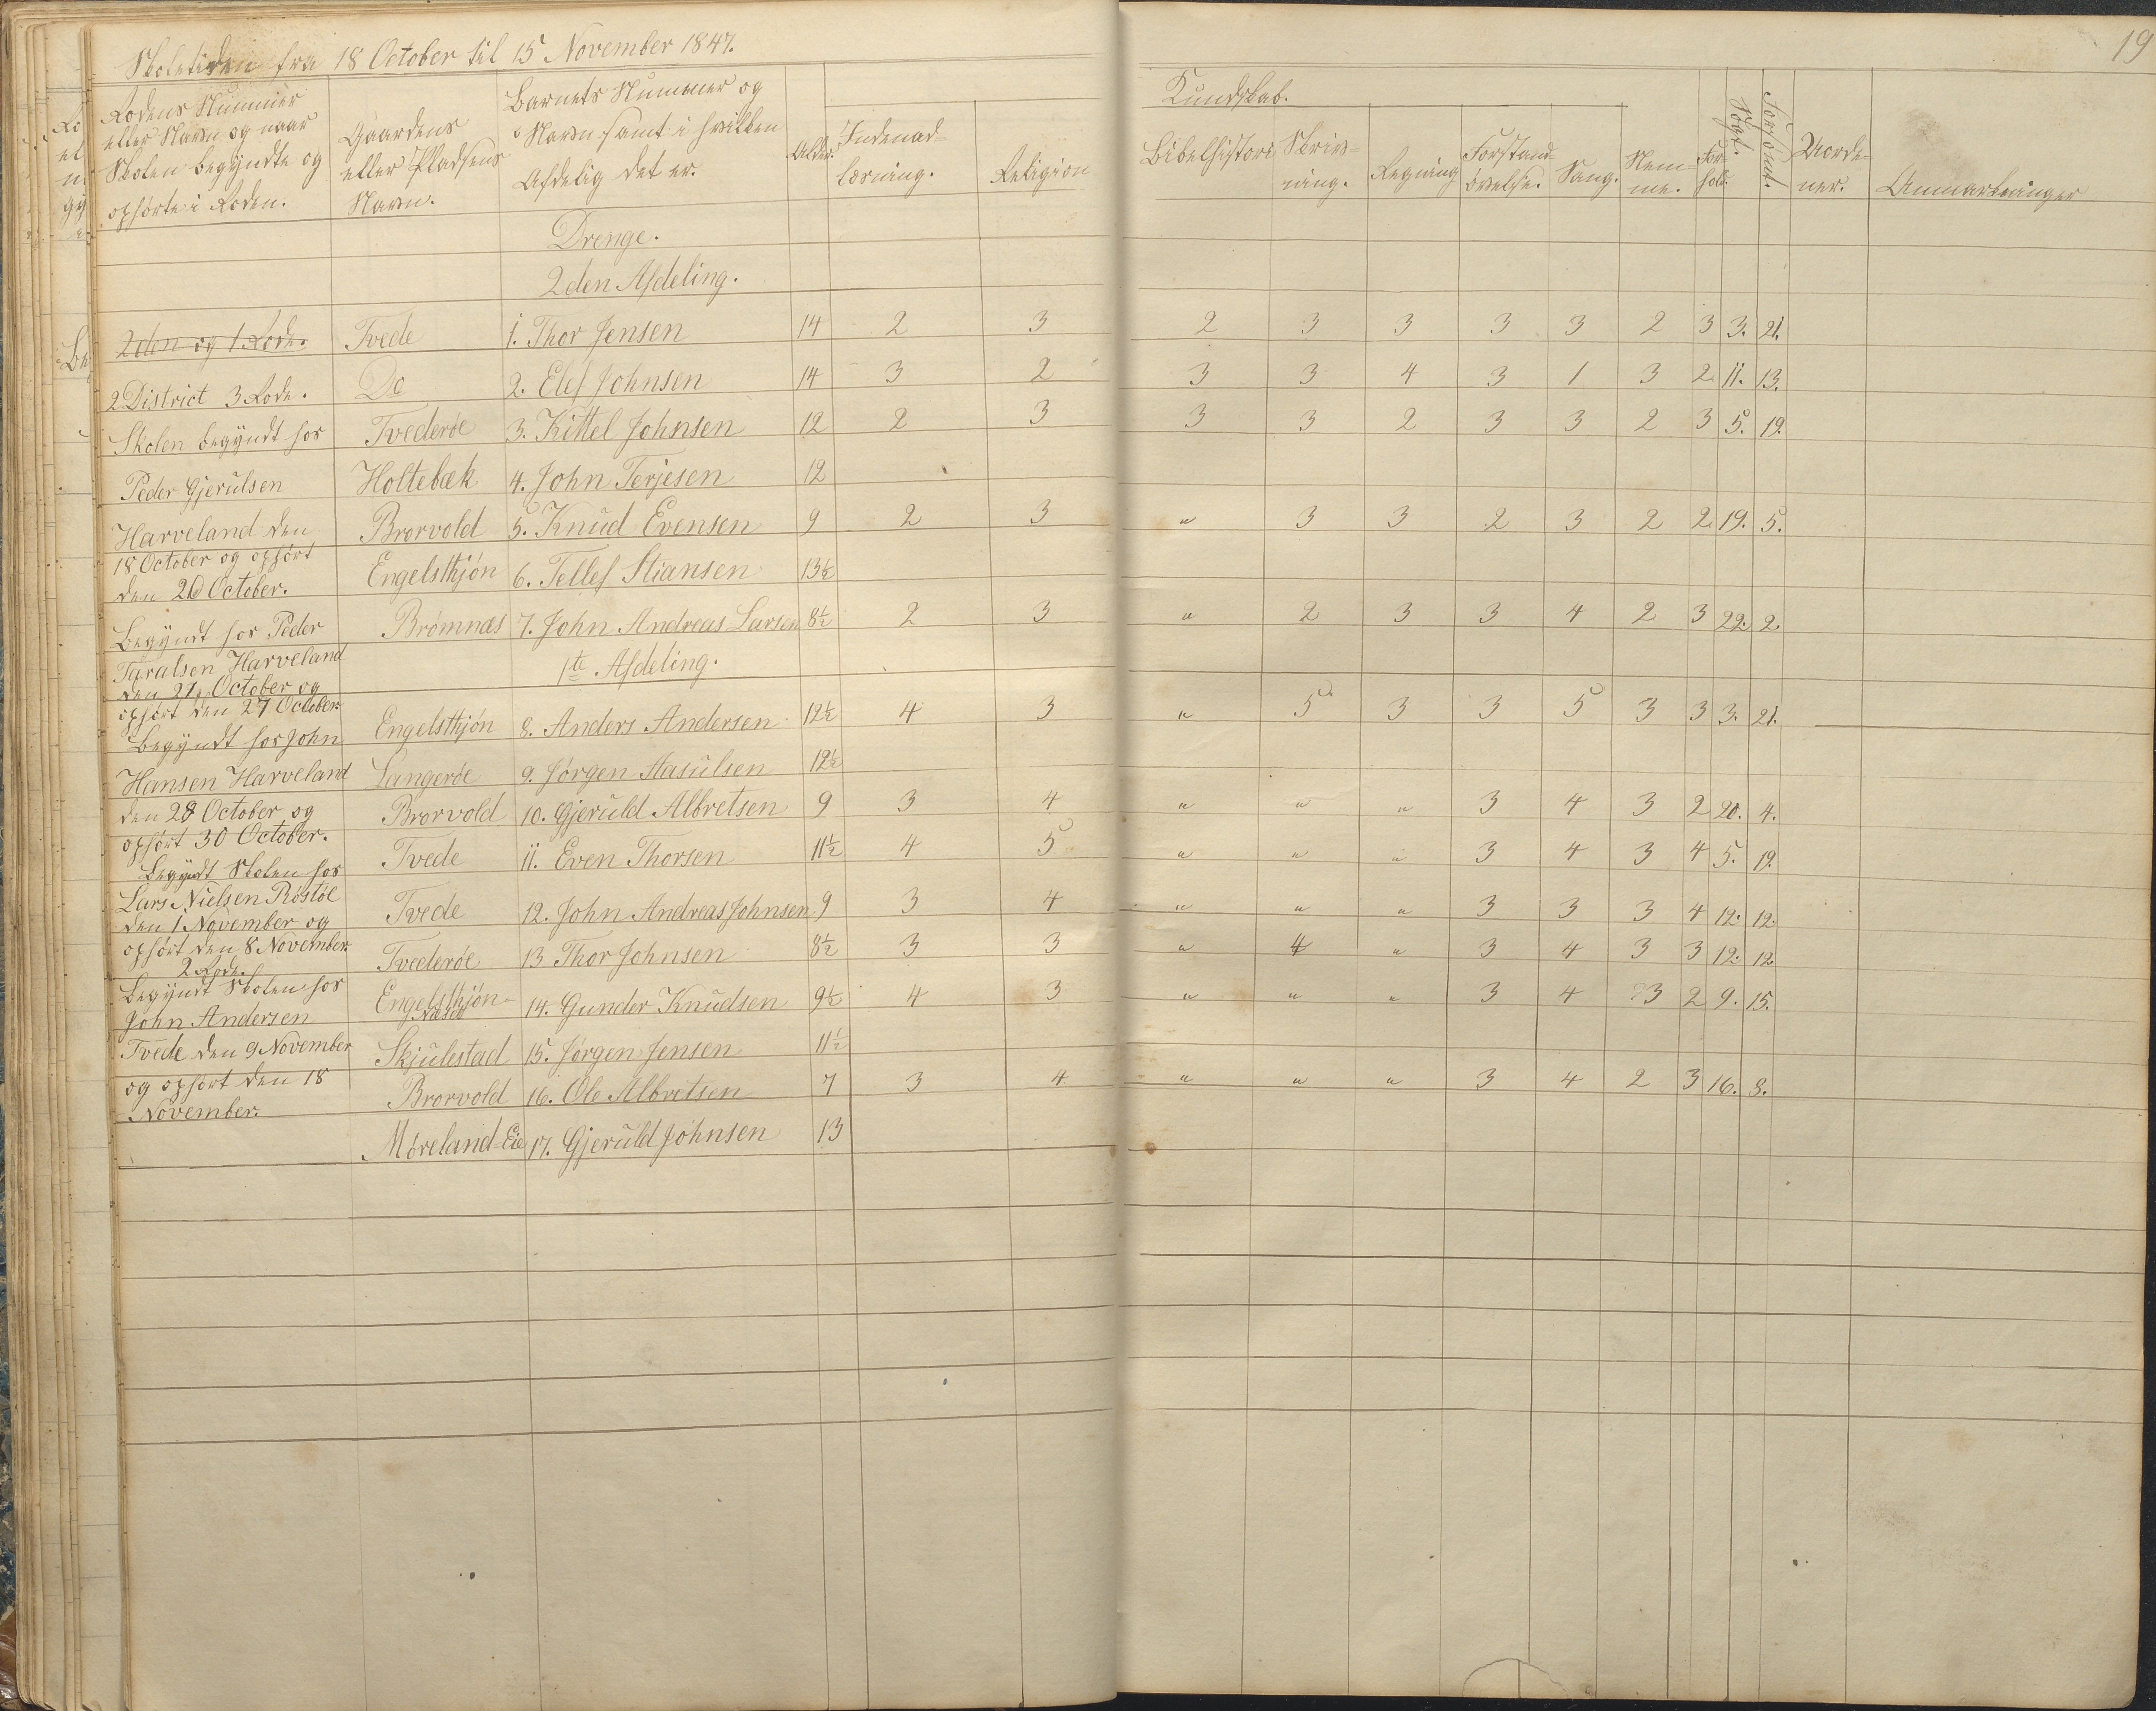 Skoletiden fra 18 October til 15 November 1847.
19
Rodens Nummer eller Navn og naar Skolen begyndte og ophørte i Roden.
Gaardens eller Pladsens Navn.
Barnets Nummer og Navn samt i hvilken Afdelig det er.
Alder.
Kundskab.
Indenad-læsning.
Religion
Bibelhistori
Skriv-ning.
Regning
Forstand-øvelse.
Sang.
Nem-me.
For-hold.
Søgt.
Forsømt.
Anmærkninger
Drenge.
2den Afdeling.
2den og 1 Rode. Tvede 1. Thor Jensen 14 2 3 2 3 3 3 3 2 3 3. 21.
2 District 3 Rode. Do 2. Elef Johnsen 14 3 2 3 3 4 3 1 3 2 11. 13.
Skolen begyndt hos Tvederøe 3. Kittel Johnsen 12 2 3 3 3 2 3 3 2 3 5. 19.
Peder Gjerulsen Holtebæk 4. John Terjesen 12
Harveland den Brorvold 5. Knud Evensen 9 2 3 " 3 3 2 3 2 2 19. 5.
18 October og ophørt
den 20 October. Engelsthjøn 6. Tellef Stiansen 13½
Begyndt hos Peder Brømnæs 7. John Andreas Larsen 8½ 2 3 " 2 3 3 4 2 3 22. 2.
Taralsen Harveland
1te Afdeling.
den 21 October og
ophørt den 27 October.
Begyndt hos John Engelsthjøn 8. Anders Andersen 12½ 4 3 " 5 3 3 5 3 3 3. 21.
Hansen Harveland Langerøe 9. Jørgen Aasulsen 12½
den 28 October og Brorvold 10. Gjeruld Albretsen 9 3 4 " " " 3 4 3 2 20. 4.
ophørt 30 October.
Begyndt Skolen hos Tvede 11. Even Thorsen 11½ 4 5 " " " 3 4 3 4 5. 19.
Lars Nielsen Røstøl
den 1 November og Tvede 12. John Andreas Johnsen 9 3 4 " " " 3 3 3 4 12. 12.
ophørt den 8 November.
2 Rode. Tvederøe 13 Thor Johnsen 8½ 3 3 " 4 " 3 4 3 3 12. 12.
Begyndt Skolen hos
John Andersen Engelsthjøn-Næset 14. Gunder Knudsen 9½ 4 3 " " " 3 4 3 2 9. 15.
Tvede den 9 November Skjulestad 15. Jørgen Jensen 11½
og ophørt den 18 Brorvold 16. Ole Albretsen 7 3 4 " " " 3 4 2 3 16. 8.
November.
Møreland-Eie 17. Gjeruld Johnsen 13